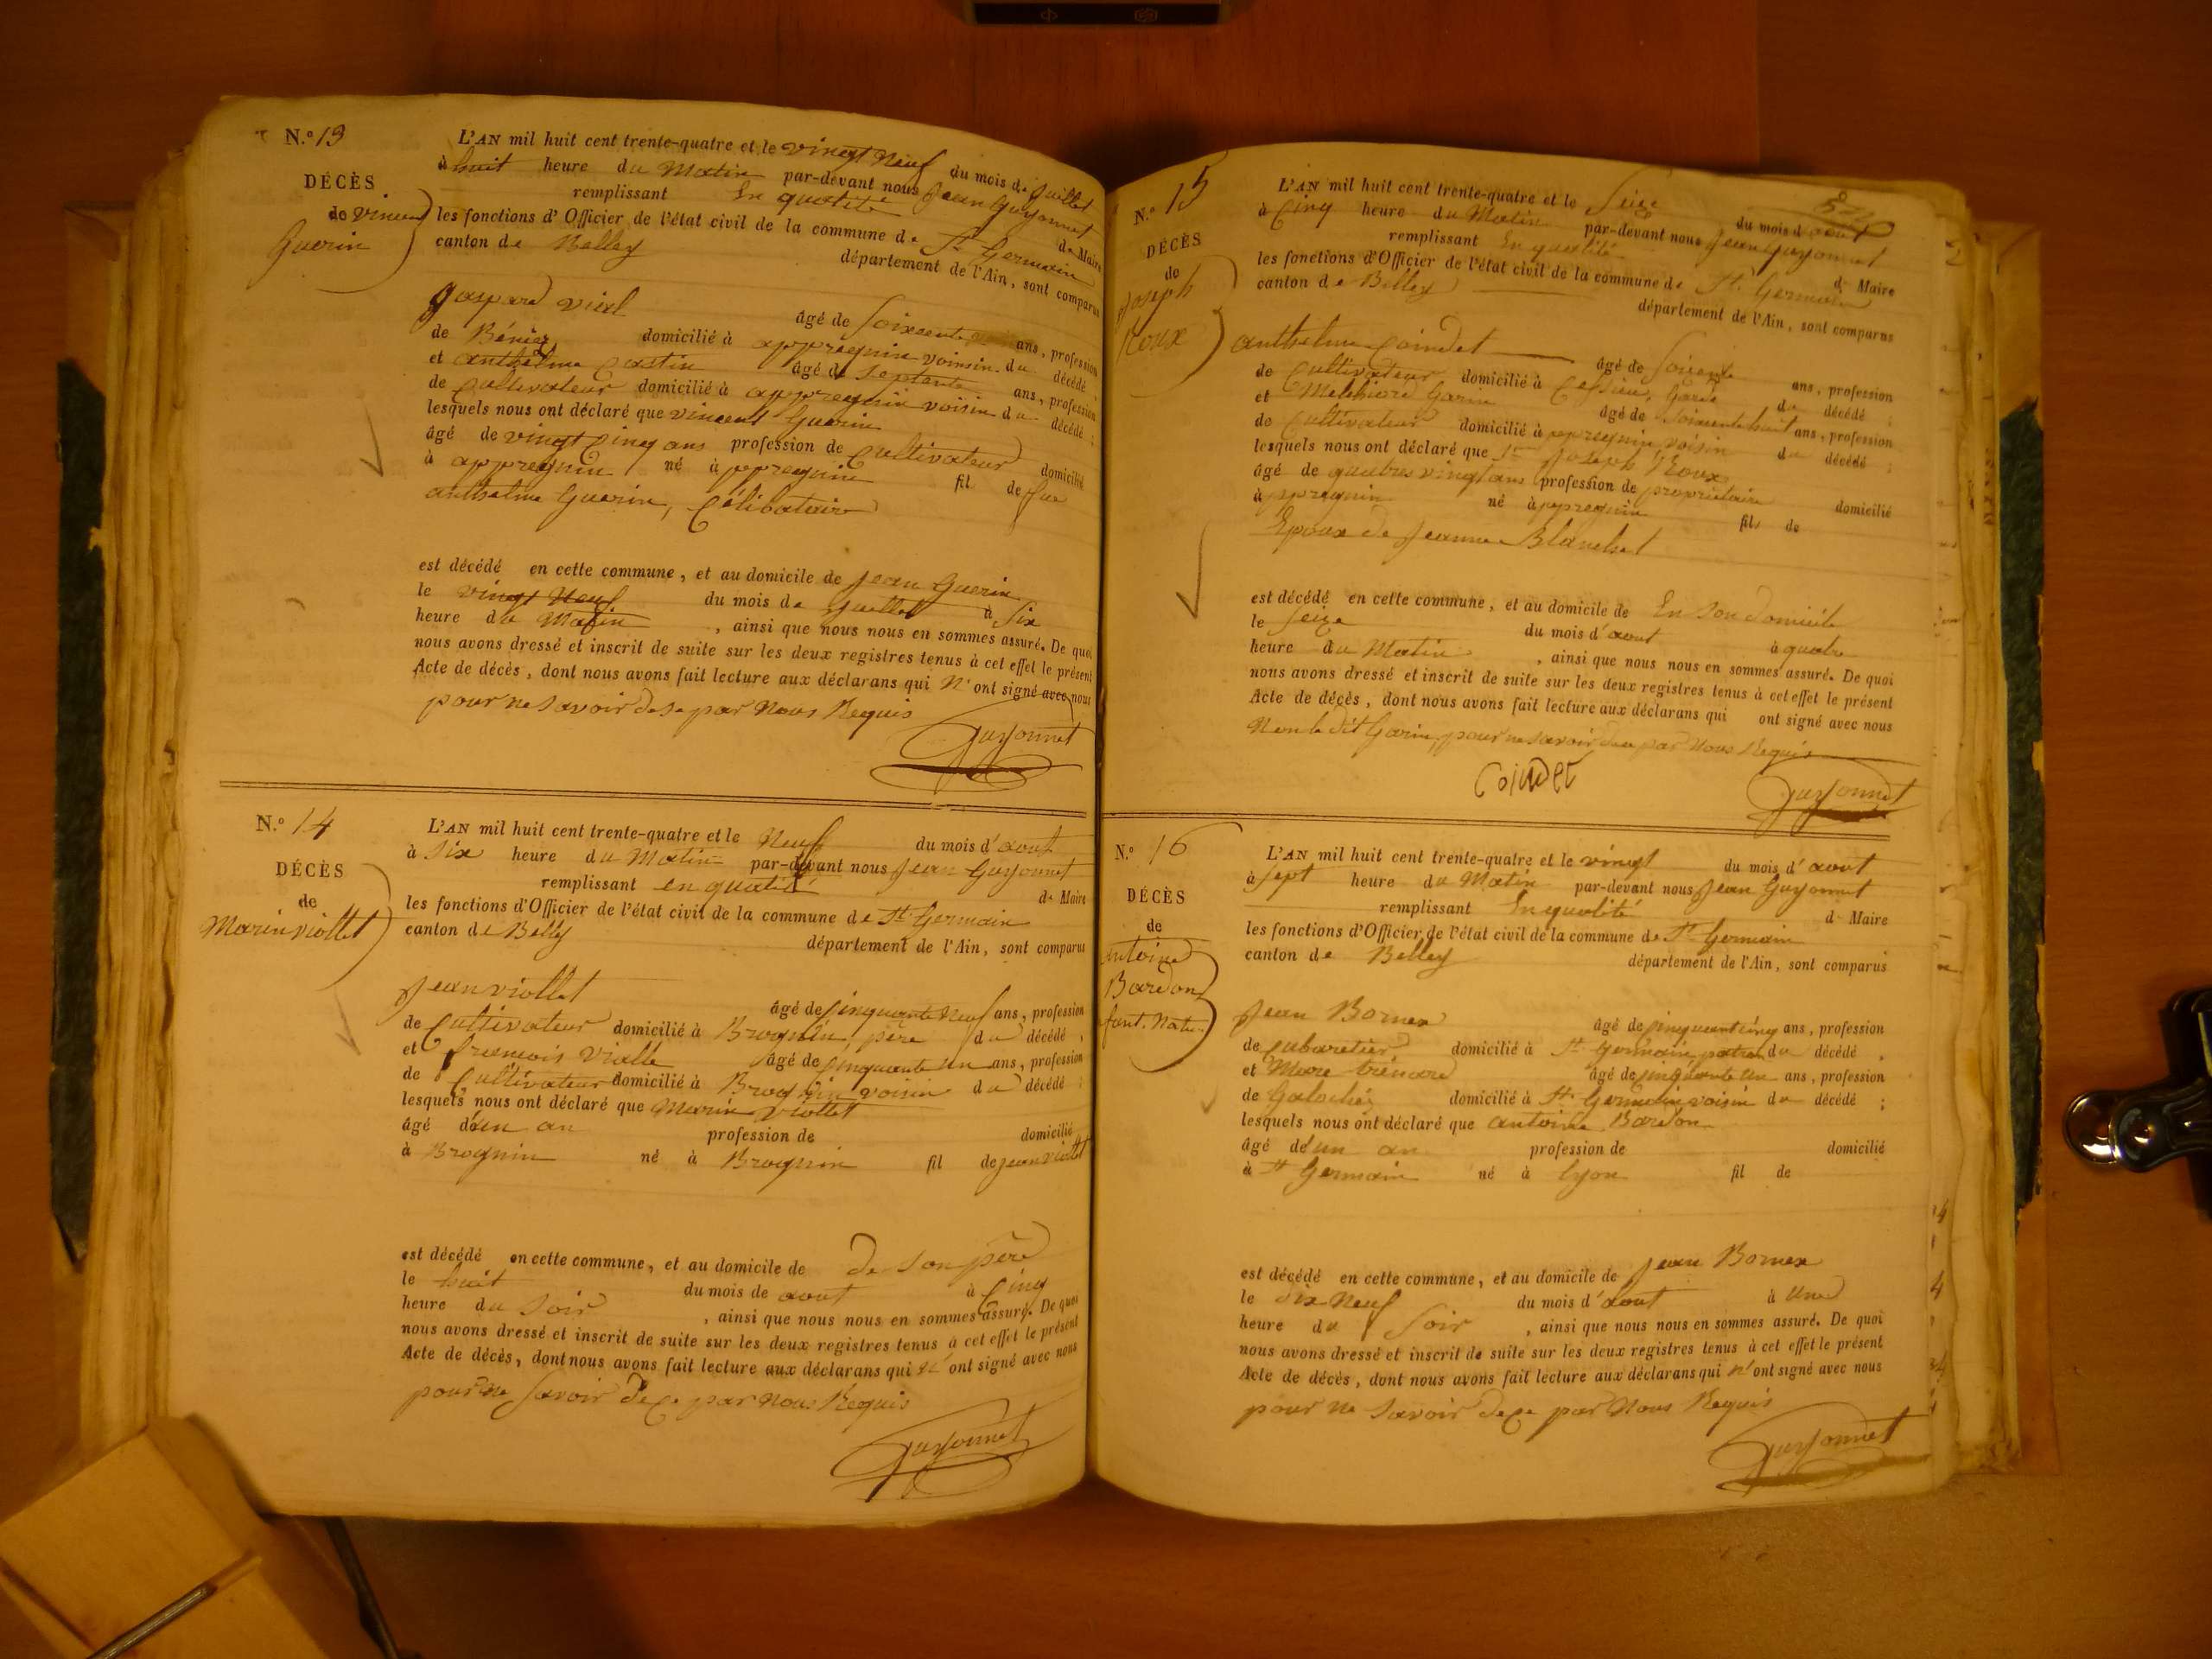 N.º 13
DÉCÈS
de vincent
Guerin
L'AN mil huit cent trente-quatre et le vingt Neuf du mois de Juillet
à huit heure du Matin par-devant nous Jean Guyonnet
remplissant En qualité de Maire
les fonctions d'Officier de l'état civil de la commune de St Germain
canton de Belley département de l'Ain, sont comparus
gaspard viel âgé de Soixante ans, profession
de domicilié à appregnin voisin du décédé
et anthelme Castin âgé de Septante ans, profession
de Cultivateur domicilié à appregnin voisin du décédé ;
lesquels nous ont déclaré que vincent Guerin
âgé de vingt Cinq ans profession de Cultivateur domicilié
à appregnin né à appregnin fil de feu
anthelme Guerin, Célibataire
est décédé en cette commune, et au domicile de Jean Guerin
le vingt Neuf du mois de Juillet à Six
heure du Matin, ainsi que nous nous en sommes assuré. De quoi
nous avons dressé et inscrit de suite sur les deux registres tenus à cet effet le présent
Acte de décès, dont nous avons fait lecture aux déclarans qui N'ont signé avec nous
pour ne Savoir de ce par Nous Requis
Guyonnet
N.º 14
DÉCÈS
de
Marin viollet
L'AN mil huit cent trente-quatre et le Neuf du mois d'aout
à Six heure du Matin par-devant nous Jean Guyonnet
remplissant en qualité de Maire
les fonctions d'Officier de l'état civil de la commune de St Germain
canton de Belley département de l'Ain, sont comparus
Jean viollet âgé de Cinquante Neuf ans, profession
de Cultivateur domicilié à Brognin, père du décédé,
et francois Vialle âgé de Cinquante Un ans, profession
de Cultivateur domicilié à Brognin voisin du décédé ;
lesquels nous ont déclaré que Marin Viollet
âgé d'un an profession de domicilié
à Brognin né à Brognin fil de jean viollet
est décédé en cette commune, et au domicile de de son père
le huit du mois de aout à Cinq
heure du Soir, ainsi que nous nous en sommes assuré. De quoi
nous avons dressé et inscrit de suite sur les deux registres tenus à cet effet le présent
Acte de décès, dont nous avons fait lecture aux déclarans qui N'ont signé avec nous
pour ne Savoir de ce par Nous Requis
Guyonnet
N.º 15
DÉCÈS
de
Joseph
Roux
L'AN mil huit cent trente-quatre et le Seize du mois d'aout
à Cinq heure du Matin par-devant nous Jean Guyonnet
remplissant En qualité de Maire
les fonctions d'Officier de l'état civil de la commune de St Germain
canton de Belley département de l'Ain, sont comparus
anthelme Coindet âgé de ans, profession
de Cultivateur domicilié à du décédé ;
et Melchiore Garin âgé de Soixante huit ans, profession
de Cultivateur domicilié à appregnin voisin du décédé ;
lesquels nous ont déclaré que Joseph Roux
âgé de quatres vingt ans profession de proprietaire domicilié
à appregnin né à appregnin fils de
Epoux de Jeanne Blanchet
est décédé en cette commune, et au domicile de En Son domicile
le Seize du mois d'aout à quatre
heure du Matin, ainsi que nous nous en sommes assuré. De quoi
nous avons dressé et inscrit de suite sur les deux registres tenus à cet effet le présent
Acte de décès, dont nous avons fait lecture aux déclarans qui ont signé avec nous
Non le dit Garin, pour ne savoir de ce par Nous Requis
Coindet
Guyonnet
N.º 16
DÉCÈS
de
antoine
Bardon
fant. Natu.
L'AN mil huit cent trente-quatre et le vingt du mois d'aout
à Sept heure du Matin par-devant nous Jean Guyonnet
remplissant En qualité de Maire
les fonctions d'Officier de l'état civil de la commune de St Germain
canton de Belley département de l'Ain, sont comparus
Jean Bornex âgé de Cinquant cinq ans, profession
de Cabaretier domicilié à St Germain patron du décédé,
et Marc trénard âgé de Cinquante Un ans, profession
de Galochier domicilié à St Germain voisin du décédé ;
lesquels nous ont déclaré que antoine Bardon
âgé de un an profession de domicilié
à St Germain né à Lyon fil de
est décédé en cette commune, et au domicile de Jean Bornex
le dix Neuf du mois d'aout à Une
heure du Soir, ainsi que nous nous en sommes assuré. De quoi
nous avons dressé et inscrit de suite sur les deux registres tenus à cet effet le présent
Acte de décès, dont nous avons fait lecture aux déclarans qui n'ont signé avec nous
pour ne Savoir de ce par Nous Requis
Guyonnet